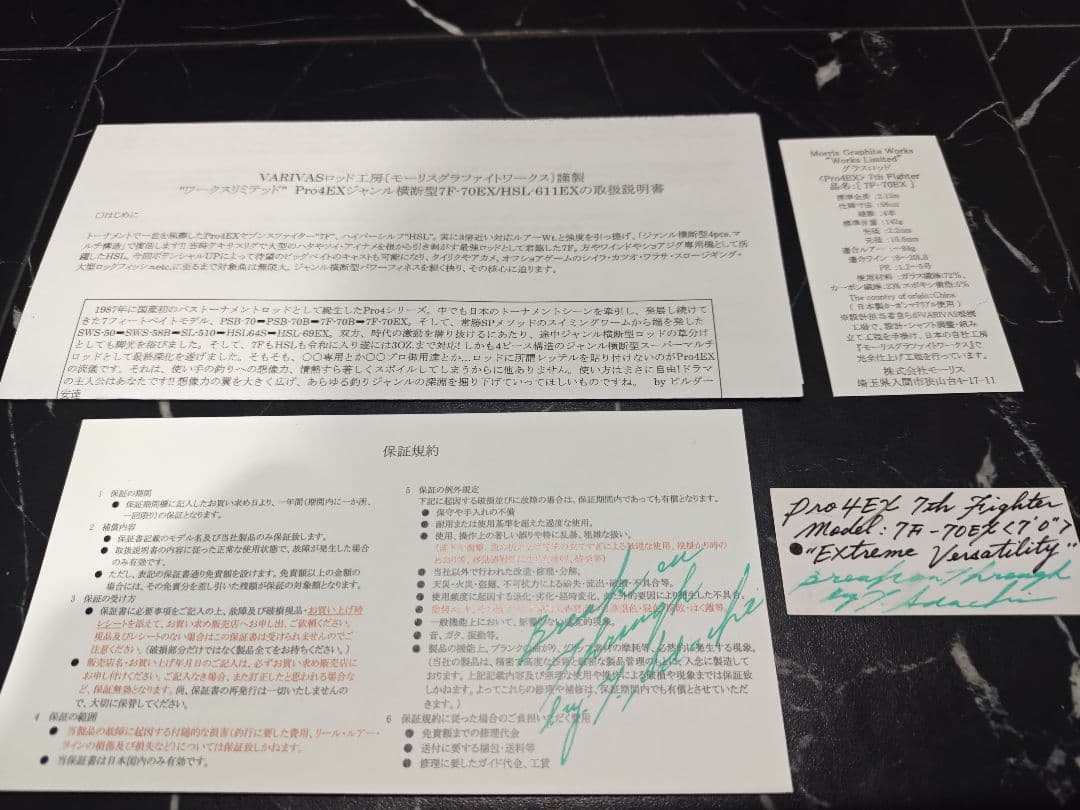 VARIVASロッド工房〔モーリスグラファイトワークス〕謹製
"ワークスリミテッド" Pro4EXジャンル横断型7F-70EX/HSL-611EXの取扱説明書
□はじめに
トーナメントで一世を風靡したPro4EXセブンスファイター"7F"、ハイパーシルフ"HSL"。実に3倍近い対応ルアーWt.と強度を引っ提げ、「ジャンル横断型4pcs.マ
ルチ構造」で復活します!! 当時テキサスリグで大型のハタやソイ・アイナメを根から引き剥がす最強ロッドとして君臨した7F。方やワインドやショアジグ専用機として活
躍したHSL。今回ポテンシャルUPによって待望のビッグベイトのキャストも可能になり、タイリクやアカメ、オフショアゲームのシイラ・カツオ・ワラサ・スロージギング・
大型ロックフィッシュetc.に至るまで対象魚は無限大。ジャンル横断型パワーフィネスを製く抉り、その核心に迫ります。
1987年に国産初のバストーナメントロッドとして誕生したPro4シリーズ。中でも日本のトーナメントシーンを牽引し、発展し続けて
きた7フィートベイトモデル、PSB-70➡PSB-70B➡7F-70B➡7F-70EX。そして、常勝SPメソッドのスイミングワームから端を発した
SWS-50➡SWS-58B➡SL-510➡HSL-64S➡HSL-69EX。双方、時代の激動を潜り抜けるにあたり、途中ジャンル横断型ロッドの草分け
としても脚光を浴びました。そして、7FもHSLも令和に入り遂には3OZ.まで対応! しかも4ピース構造のジャンル横断型スーパーマルチ
ロッドとして最終深化を遂げました。そもそも、〇〇専用とか〇〇プロ御用達とか…ロッドに所謂レッテルを貼り付けないのがPro4EX
の流儀です。それは、使い手の釣りへの想像力、情熱すら著しくスポイルしてしまうからに他ありません。使い方はまさに自由!ドラマ
の主人公はあなたです!! 想像力の翼を大きく広げ、あらゆる釣りジャンルの深淵を掘り下げていってほしいものですね。 by ビルダー
安達
Morris Graphite Works
"Works Limited"
グラスロッド
<Pro4EX> 7th Fighter
品名:[ 7F-70EX ]
標準全長:2.13m
仕舞寸法:58cm
継数:4本
標準自重:142g
先径:2.2mm
元径:15.6mm
適合ルアー:～84g
適合ライン:8～20LB
PE:1.2～5号
使用材料:ガラス繊維:72%、
カーボン繊維:23% エポキシ樹脂:5%
The country of origin:China
(日本製カーボンマテリアル使用)
※設計担当者自らがVARIVAS提携
工場で、設計・シャフト調整・組み
立て工程を手掛け、日本の自社工房
『モーリスグラファイトワークス』で
完全仕上げ工程を行っています。
株式会社モーリス
埼玉県入間市狭山台4-17-11
保証規約
1 保証の期間
● 保証期間欄に記入したお買い求め日より、一年間(期間内に一か所、
一回限り)の保証となります。
2 補償内容
● 保証書記載のモデル名及び当社製品のみ保証致します。
● 取扱説明書の内容に従った正常な使用状態で、故障が発生した場合
のみ有効です。
● ただし、表記の保証書通り免責額を設けます。免責額以上の金額の
場合には、その免責分を差し引いた残額が保証の対象額となります。
3 保証の受け方
● 保証書に必要事項をご記入の上、故障及び破損現品・お買い上げ時
レシートを添えて、お買い求め販売店へお申し出、ご依頼ください。
現品及びレシートのない場合はこの保証書は受けられませんのでご
注意ください。(破損部分だけではなく製品全てをお持ちください。)
● 販売店名・お買い上げ年月日のご記入は、必ずお買い求め販売店に
お申し付けください。ご記入なき場合、また訂正したと思われる場合な
ど、保証無効となります。尚、保証書の再発行は一切いたしませんの
で、大切に保管してください。
4 保証の範囲
● 当製品の故障に起因する付随的な損害(釣行に要した費用、リール・ルアー・
ラインの損傷及び損失など)については保証致しかねます。
● 当保証書は日本国内のみ有効です。
5 保証の例外規定
下記に起因する破損並びに故障の場合は、保証期間内であっても有償となります。
● 保守や手入れの不備
● 耐用または使用基準を超えた過度な使用。
● 使用、操作上の著しい誤りや特に乱暴、粗雑な扱い。
● 当社以外で行われた改造・修理・分解。
● 天災・火災・盗難、不可抗力による紛失・流出・破損・不具合等。
● 使用頻度に起因する消化・劣化・経時変化、また外的要因により発生した不具合。
● 一般機能上において、影響のない感覚的現象。
● 音、ガタ、振動等。
● 製品の機能上、ブランクの曲がり、グリップ素材の摩耗等、必然的に発生する現象。
(当社の製品は、精密で高度な技術と緻密な製品管理のもと、入念に製造して
おります。上記記載内容及び無理な使用や扱いによる破損や現象までは保証致
しかねます。よってこれらの修理や補修は、保証期間内でも有償とさせていただ
きます。)
6 保証規約に従った場合のご負担いただく費用
● 免責額までの修理代金
● 送付に要する梱包・送料等
● 修理に要したガイド代金、工賃
Break on
Through
by. T. Adachi
Pro4EX 7th Fighter
Model: 7F-70EX<7'0">
●"EXtreme Versatility"
Break on Through
by. T. Adachi